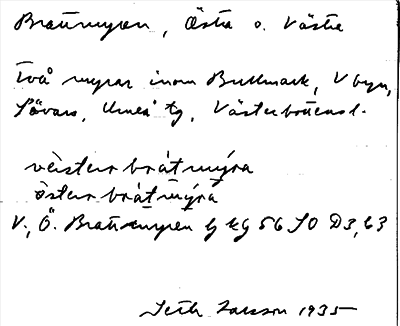 Brattmyran, Östra o. Västra
Två myrar inom Bullmark, V byn,
Sävars, Umeå tg, Västerbottens l.
vèsterr bråtmýra
österr bråtmýra
V., Ö. Brattmyran bg kg 56 SO D3, 63
Seth Larsson 1935